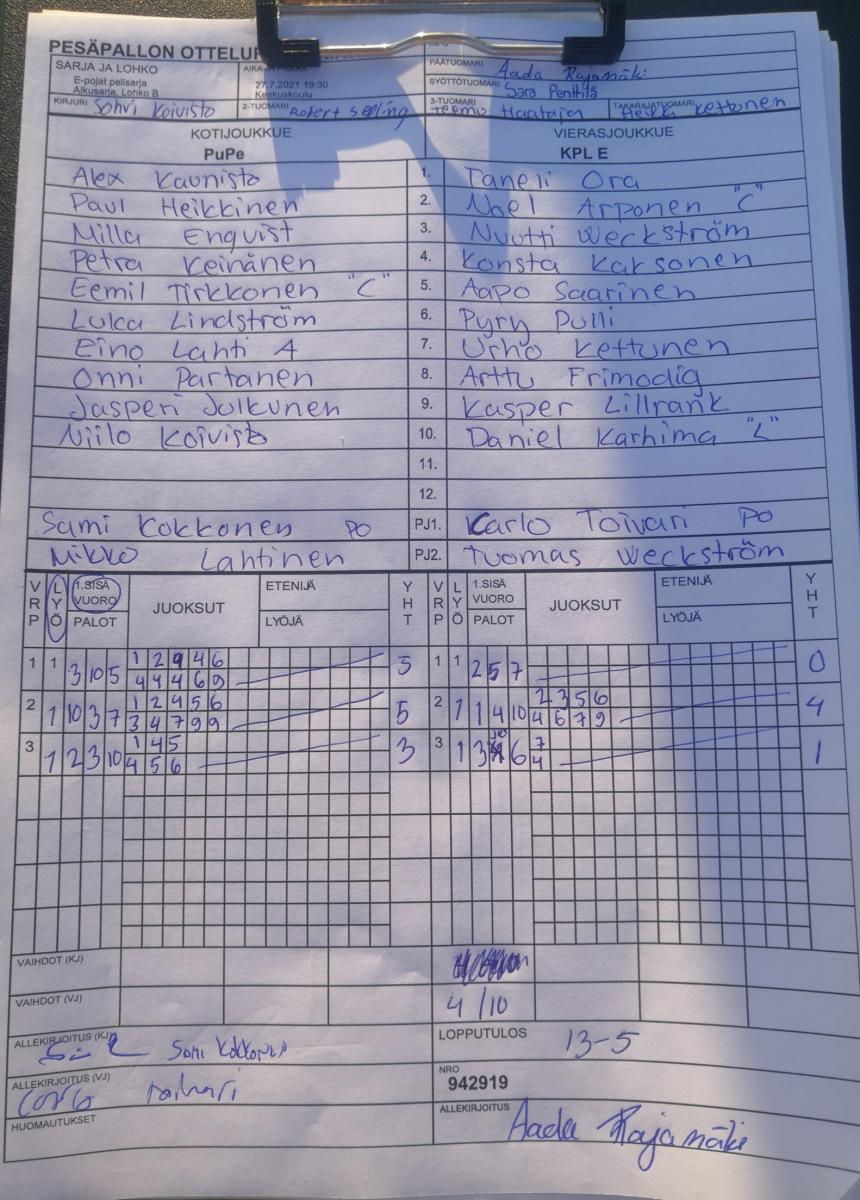 PESÄPALLON OTTELUP
SARJA JA LOHKO
E-pojat pelisarja
Alkusarja, Lohko B
27.7.2021 19:30
Keskuskoulu
PÄÄTUOMARI Aada Rajamäki
SYÖTTÖTUOMARI Sara Penttilä
KIRJURI Sohvi Koivisto
2-TUOMARI Robert
3-TUOMARI Teemu Haataja
TAKARAJATUOMARI Heikki Kettunen
KOTIJOUKKUE VIERASJOUKKUE
PuPe KPL E
Alex Kaunisto 1. Taneli Ora
Paul Heikkinen 2. Noel Arponen "C"
Milla Enqvist 3. Nuutti Weckström
Petra Keinänen 4. Konsta Karsonen
Eemil Tirkkonen "C" 5. Aapo Saarinen
Luka Lindström 6. Pyry Pulli
Eino Lahti A 7. Urho Kettunen
Onni Partanen 8. Arttu Frimodig
Jasperi Julkunen 9. Kasper Lillrank
Niilo Koivisto 10. Daniel Karhima "L"
11.
12.
Sami Kokkonen PO PJ1. Karlo Toivari PO
Mikko Lahtinen PJ2. Tuomas Weckström
VRP LYÖ 1.SISÄ VUORO PALOT JUOKSUT ETENIJÄ LYÖJÄ YHT VRP LYÖ 1.SISÄ VUORO PALOT JUOKSUT ETENIJÄ LYÖJÄ YHT
1 1 3 10 5 1 2 9 4 6 5 1 1 2 5 7 0
4 4 4 6 9
2 1 10 3 7 1 2 4 5 6 5 2 1 1 4 10 2 3 5 6 4
3 4 7 9 9 4 6 7 9
3 1 2 3 10 1 4 5 3 3 1 3 10 6 7 1
4 5 6 4
VAIHDOT (KJ)
VAIHDOT (VJ) 4/10
ALLEKIRJOITUS (KJ) Sami Kokkonen LOPPUTULOS 13-5
ALLEKIRJOITUS (VJ) NRO
942919
HUOMAUTUKSET ALLEKIRJOITUS Aada Rajamäki